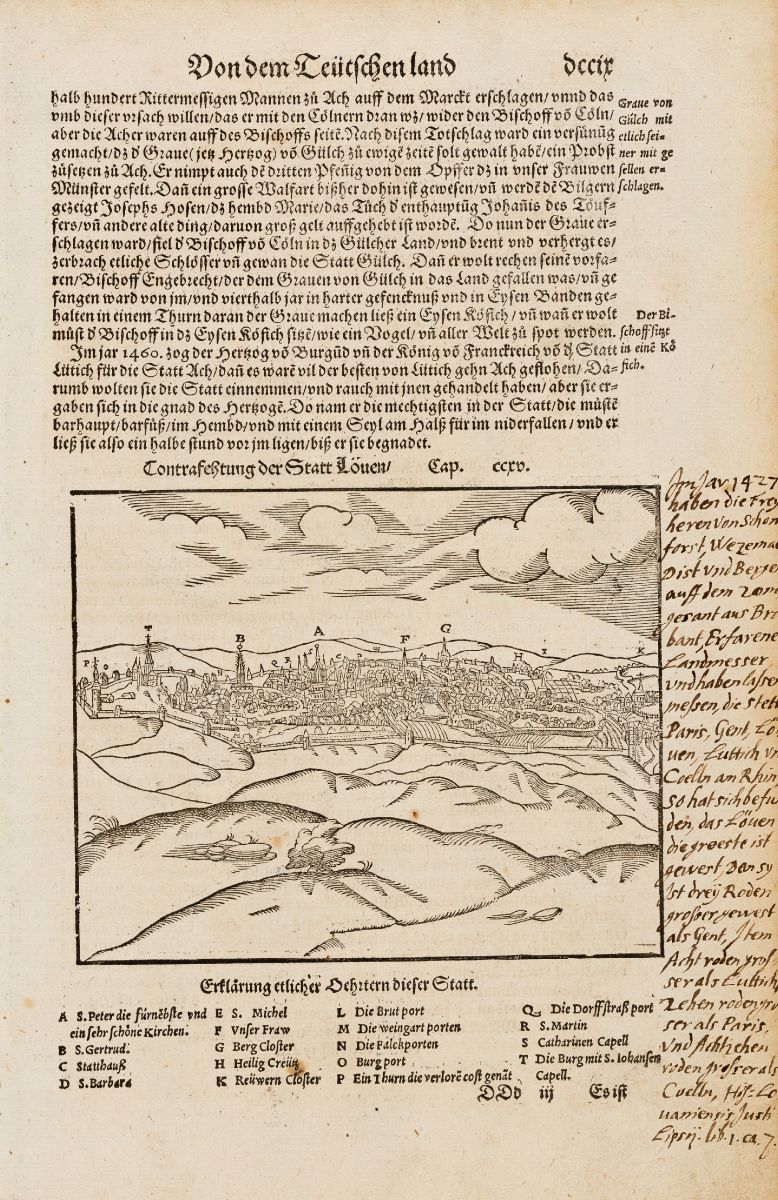 Von dem Teütschen land dccix
halb hundert Rittermessigen Mannen zů Ach auff dem Marckt erschlagen/ vnnd das
vmb dieser vrsach willen/ das er mit den Cölnern dran wz/ wider den Bischoff võ Cöln/
aber die Acher waren auff des Bischoffs seitẽ. Nach disem Totschlag ward ein versünũg
gemacht/ dz ď Graue (jetz Hertzog) võ Gülch zů ewigẽ zeitẽ solt gewalt habẽ/ ein Probst
zůsetzen zů Ach. Er nimpt auch dẽ dritten Pfeñig von dem Opffer dz in vnser Frauwen
Münster gefelt. Dañ ein grosse Walfart bißher dohin ist gewesen/ vñ werdẽ dẽ Bilgern
gezeigt Josephs Hosen/ dz hembd Marie/ das Tůch ď enthauptũg Johañis des Töuf-
fers/ vñ andere alte ding/ daruon groß gelt auffgehebt ist wordẽ. Do nun der Graue er-
schlagen ward/ fiel ď Bischoff võ Cöln in dz Gülcher Land/ vnd brent vnd verhergt es/
zerbrach etliche Schlösser vñ gewan die Statt Gülch. Dañ er wolt rechen seinẽ vorfa-
ren/ Bischoff Engebrecht/ der dem Grauen von Gülch in das Land gefallen was/ vñ ge
fangen ward von jm/ vnd vierthalb jar in harter gefencknuß vnd in Eysen Banden ge-
halten in einem Thurn daran der Graue machen ließ ein Eysen Köfich/ vñ wañ er wolt
můst ď Bischoff in dz Eysen Köfich sitzẽ/ wie ein Vogel/ vñ aller Welt zů spot werden.
Im jar 1460. zog der Hertzog võ Burgũd vñ der König võ Franckreich võ ď Statt
Lütich für die Statt Ach/ dañ es warẽ vil der besten von Lütich gehn Ach geflohen/ Da-
rumb wolten sie die Statt einnemmen/ vnd rauch mit jnen gehandelt haben/ aber sie er-
gaben sich in die gnad des Hertzogẽ. Do nam er die mechtigsten in der Statt/ die můstẽ
barhaupt/ barfůß/ im Hembd/ vnd mit einem Seyl am Halß für im niderfallen/ vnd er
ließ sie also ein halbe stund vor jm ligen/ biß er sie begnadet.
Graue von
Gülch mit
etlich sei-
ner mit ge
sellen er-
schlagen.
Der Bi-
schoff sitzt
in einẽ Kö
fich.
Contrafehtung der Statt Löuen/ Cap. ccxv.
P T B Q R S A C D F G H I K
Im Jar 1427
haben die Frey
heren von Schon
forst, Wezemae
Dist vnd Beyse
auff dem
gesant aus Bra
bant, Erfarene
Landmesser,
vnd haben lassen
messen, die stett
Paris, Gent, Lö
uen, Luttich vn
Coelln am Rhin,
so hat sich befu
den, das Löuen
die groeste ist
gewest, Dan sy
Ist dreÿ Roden
grosser gewest
als Gent, Item
Acht roden gros
ser als Luttich,
Zehen roden gro
ser als Paris,
Vnd Achtzehen
roden grosser als
Coelln, Hist. Lo
uaniensis Justi
Lipsij. lib. 1. ca. 7.
Erklärung etlicher Oehrtern dieser Statt.
A S. Peter die fürnẽbste vnd
ein sehr schöne Kirchen.
B S. Gertrud.
C Statthauß
D S. Barbara
E S. Michel
F Vnser Fraw
G Berg Closter
H Heilig Creütz
K Reüwern Closter
L Die Brut port
M Die weingart porten
N Die Fålckporten
O Burg port
P Ein Thurn die verlorẽ cost genãt
Q Die Dorffstraß port
R S. Martin
S Catharinen Capell
T Die Burg mit S. Iohansen
Capell.
DDd iij Es ist